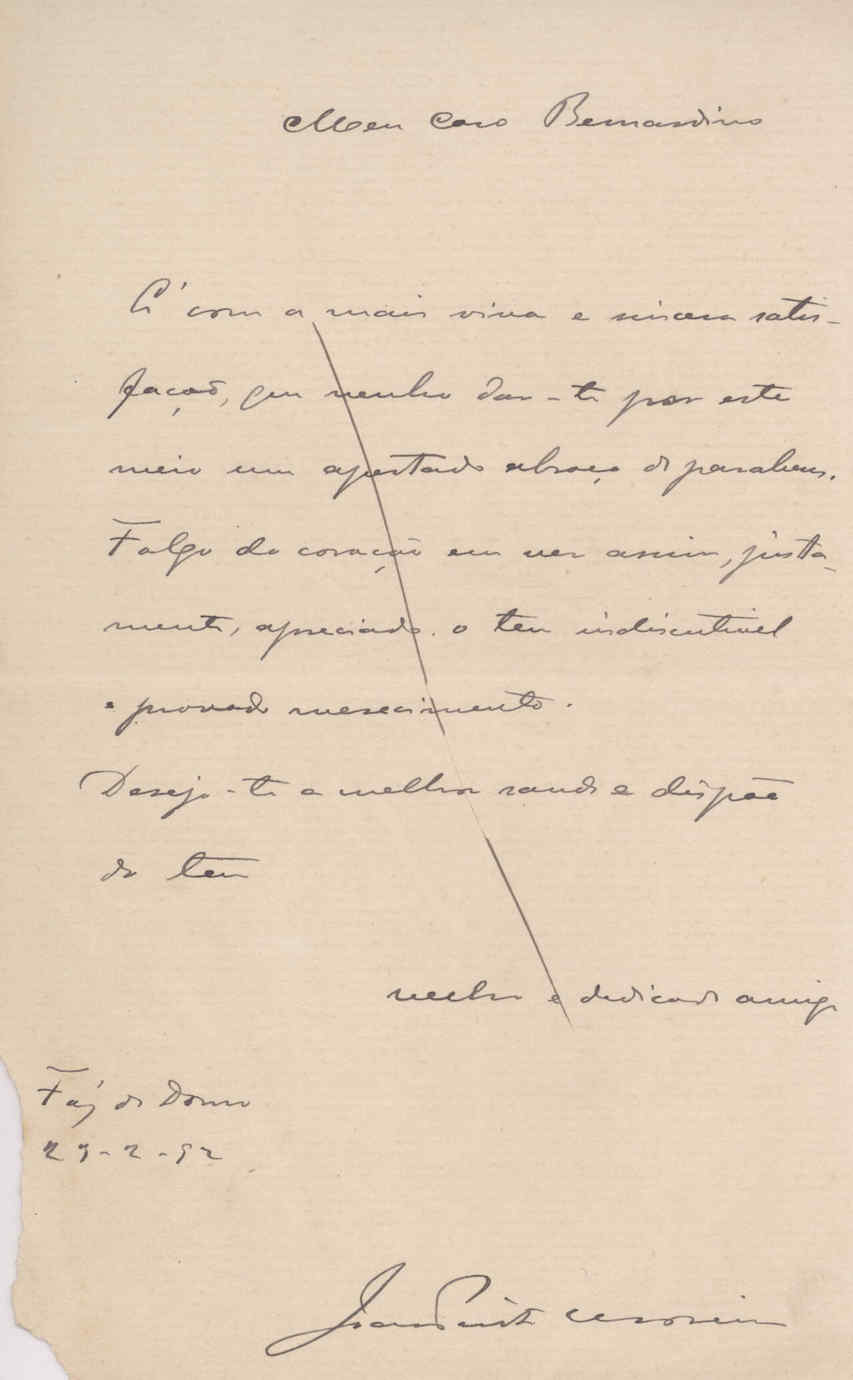 Meu Caro Bernardino
É com a mais viva e sincera satis-
façaõ, que venho dar-te por este
meio um apertado abraço de parabens.
Folgo do coração em ver assim, justa-
mente, apreciado o teu indiscutivel
e provado merecimento.
Desejo-te a melhor saude e dispõe
do teu
velho e dedicado amigo
Foz do Douro
2-92
João